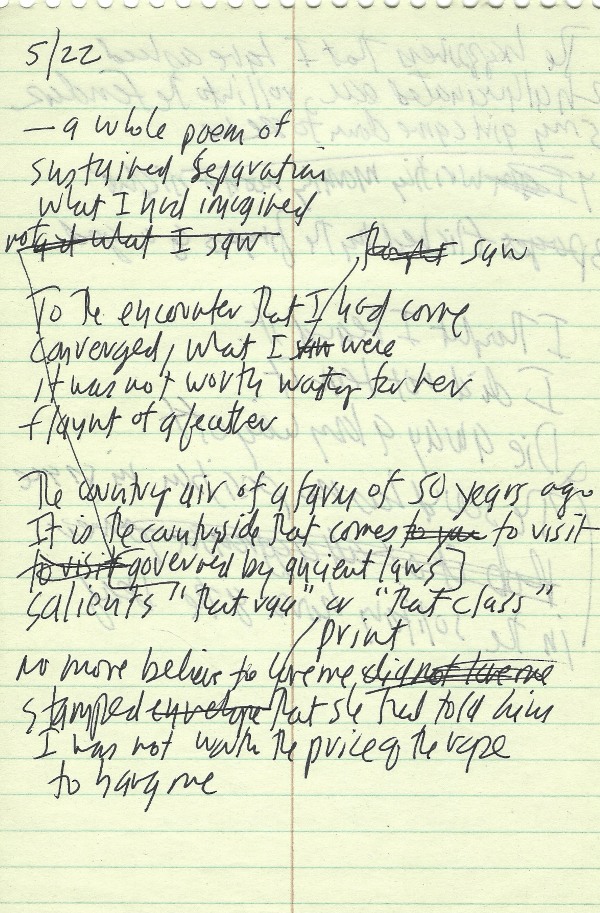 5/22
— a whole poem of
sustained separation
what I had imagined
not and what I saw
thought saw
To the encounter that I had come
converged, what I saw were
it was not worth waiting for her
flaunt of a feather
The country air of a farm of 50 years ago
It is the countryside that comes to you to visit
to visit governed by ancient laws]
salients "that rag" or "that class"
print
no more believe to love me did not love me
stamped envelope that she had told him
I was not worth the price of the rope
to hang me